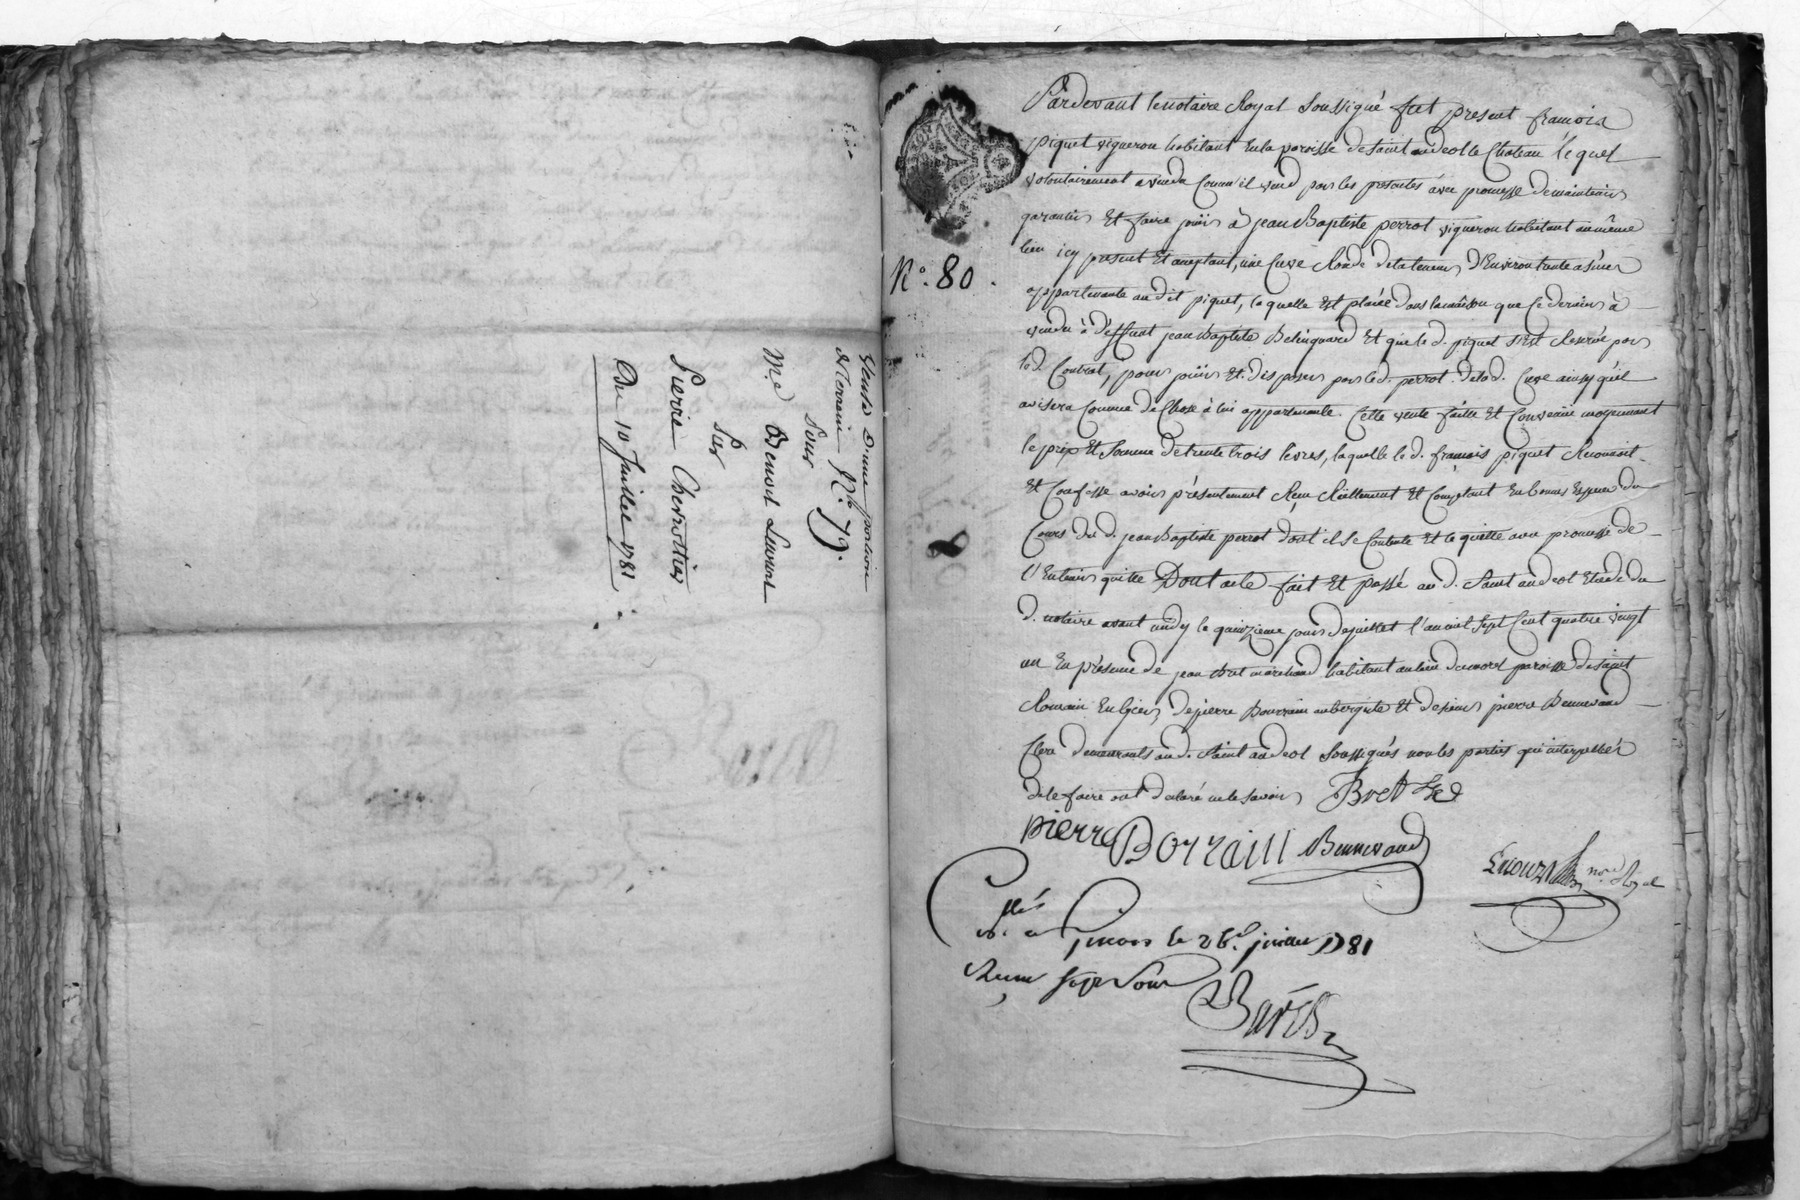 Vente d'une portion
de terrain N.º 79.
Pour
Me Benoit Laurent
Sur
Pierre Chervottier
Du 10 Juillet 1781
N.º 80.
Pardevant le notaire Royal soussigné fut present francois
piquet vigneron habitant en la paroisse de saint andeol le Chateau lequel
volontairement a vendu Comm'il vend par les presentes avec promesse de maintenir
garantir Et faire joüir à jean Baptiste perrot vigneron habitant au même
lieu icy present Et acceptant, une Cuve Ronde de la teneur d'Environ trente asnées
appartenante au dit piquet, laquelle Est placée dans la maison que ce dernier à
vendu à deffunt jean Baptiste Belinguard Et que le d. piquet s'Est Réservé par
led. Contrat, pour joüir Et disposer par le d. perrot de la d. Cuve ainsy qu'il
avisera Comme de Chose à lui appartenante. Cette vente faitte Et Convenüe moyennant
le prix Et Somme de trente trois livres, laquelle le d. françois piquet Reconnoit
Et Confesse avoir présentement Reçu Réellement Et Comptant En bonnes Especes du
Cours du d. jean Baptiste perrot dont il se Contente Et le quitte avec promesse de
l'En tenir quitte Dont acte fait Et passé au d. Saint andeol Etude du
d. notaire avant midy le quinzieme jour de juillet l'an mil sept Cent quatre vingt
un En présence de jean Bret marchand habitant au lieu de mores paroisse de saint
Romain En Gier, de pierre Bourrain aubergiste Et de sieur pierre Bennevaud
Clerc demeurants au d. Saint andeol Soussignés non les parties qui interpellées
de le faire ont declaré ne le savoir Bret
pierre Borrain Bennevaud
nore Royal
Cllé
à Givors le 26. juillet 1781
Reçu sept sous